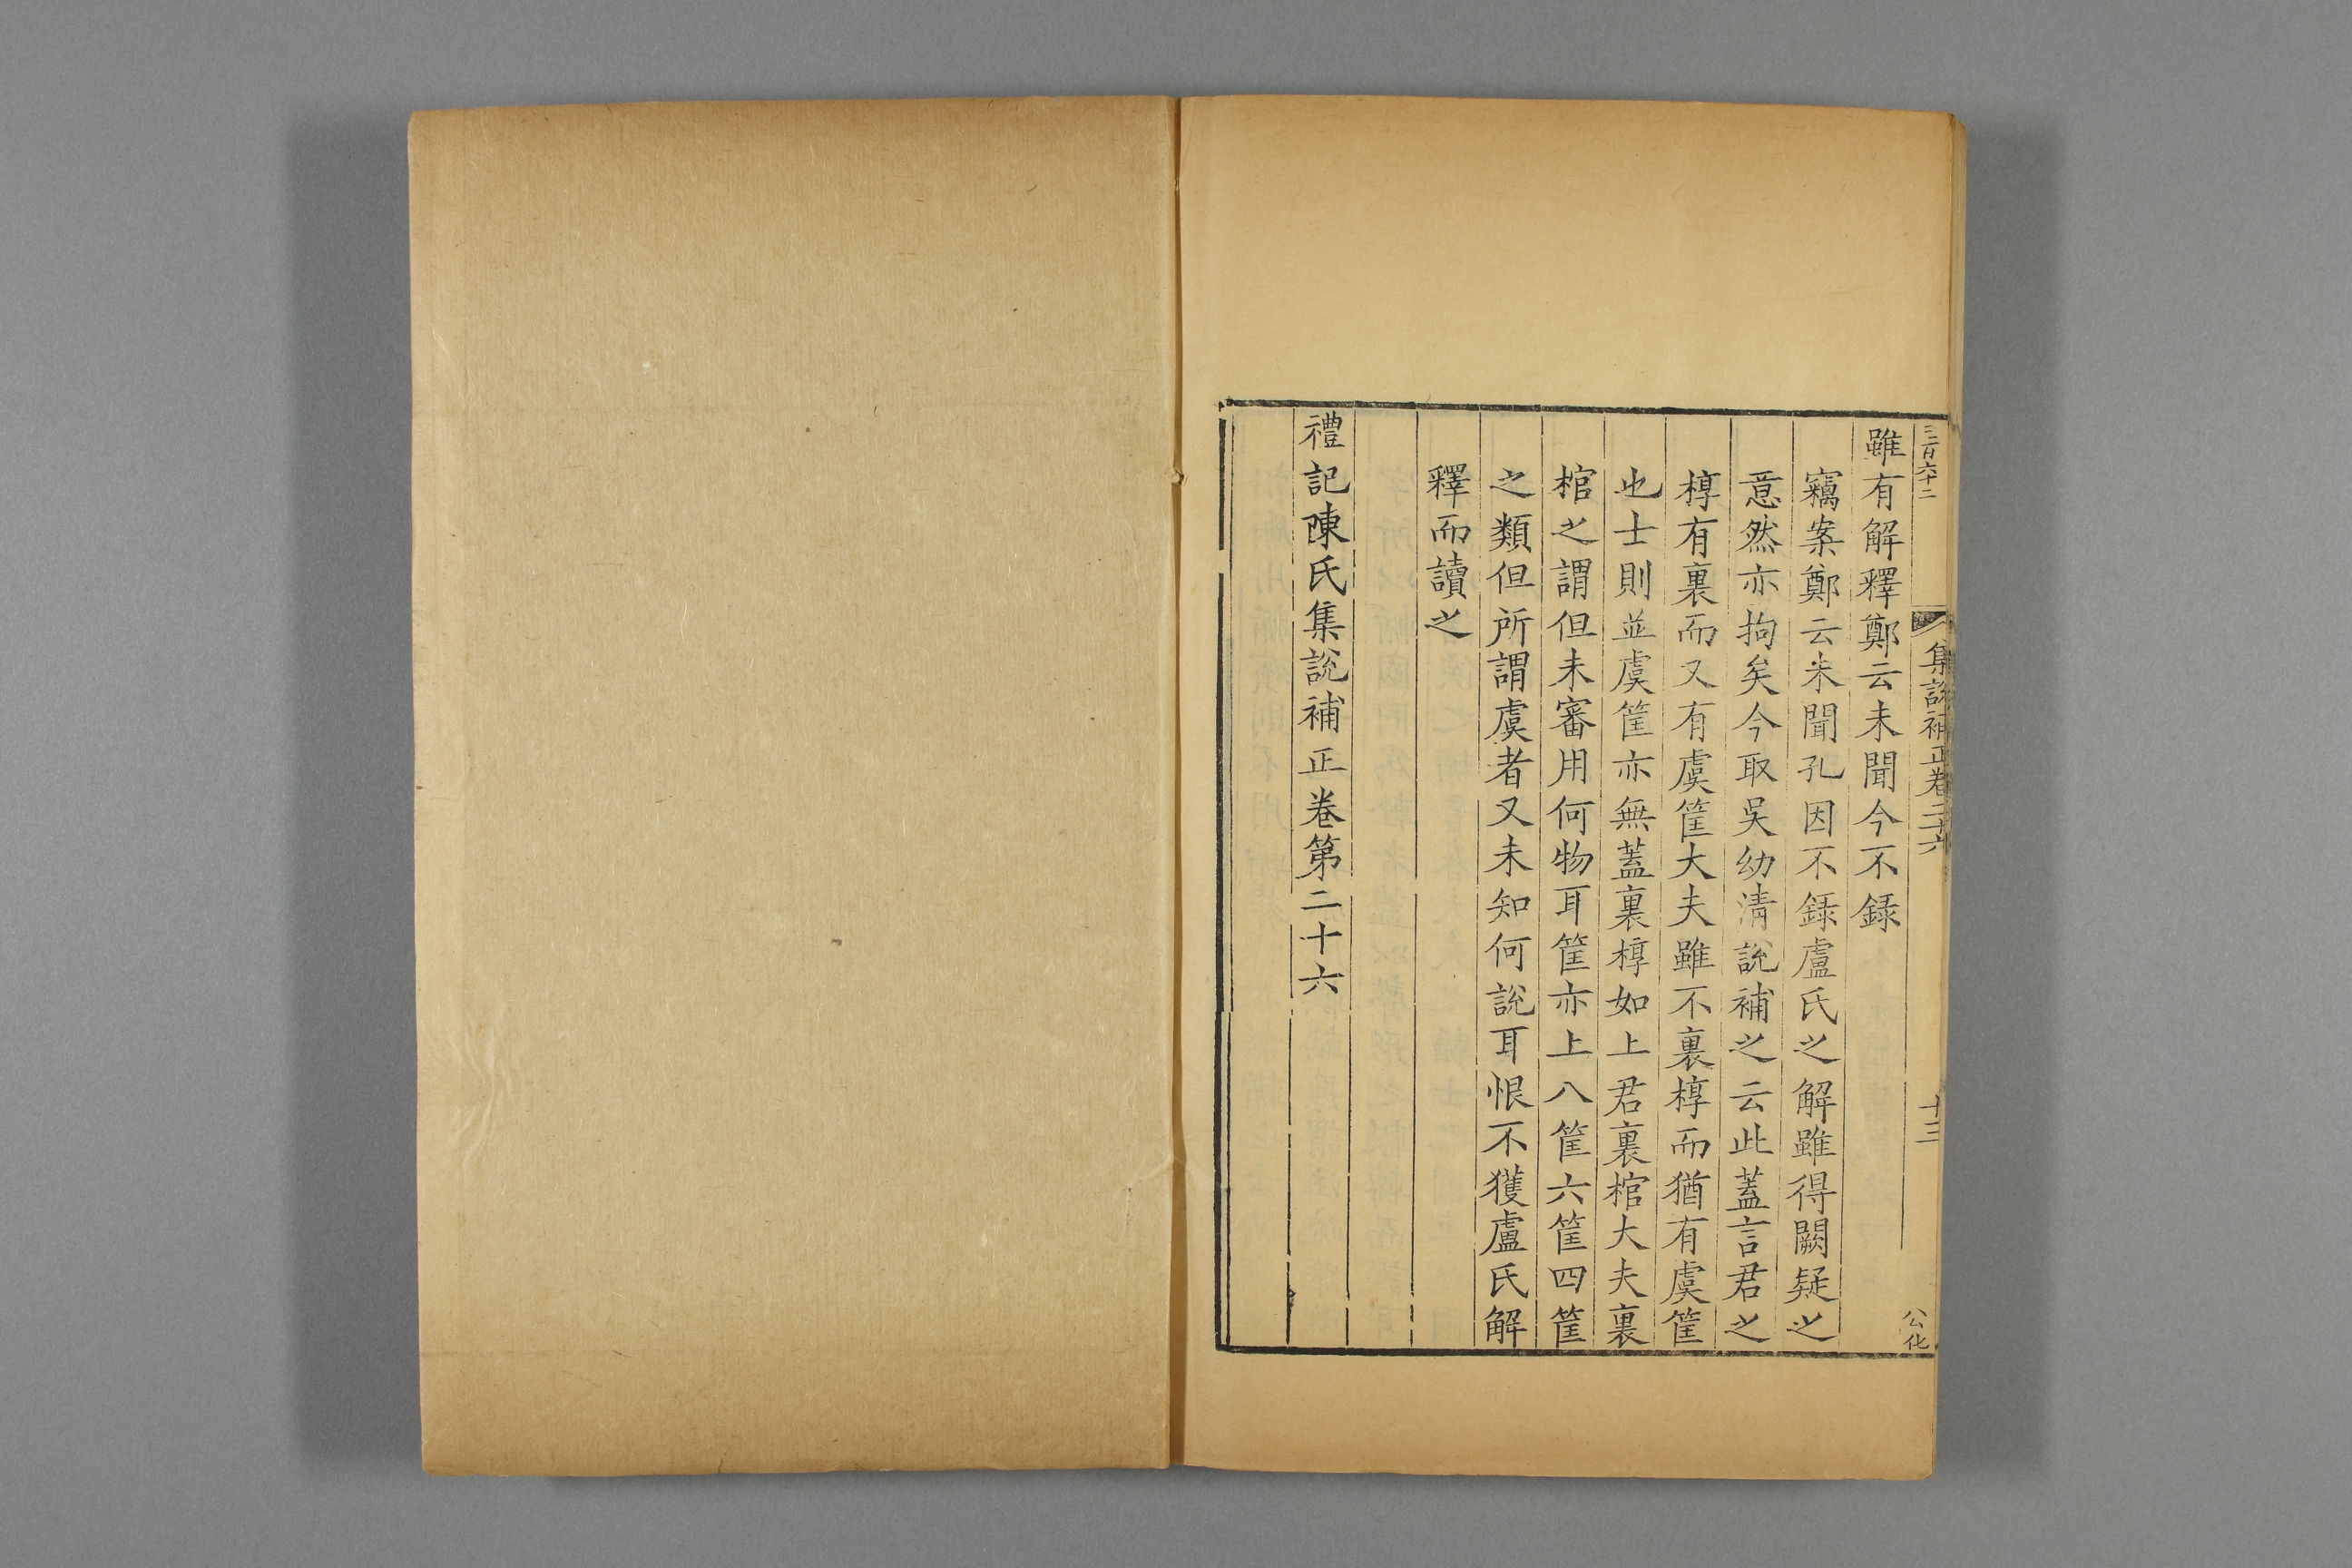 三百六十二
集説補正卷二十六
十三
公化
雖有解釋鄭云未聞今不録
竊案鄭云未聞孔因不録盧氏之解雖得闕疑之
意然亦拘矣今取吳幼清說補之云此蓋言君之
椁有裏而又有虞筐大夫雖不裏椁而猶有虞筐
也士則並虞筐亦無蓋裏椁如上君裏棺大夫裏
棺之謂但未審用何物耳筐亦上八筐六筐四筐
之類但所謂虞者又未知何說耳恨不獲盧氏解
釋而讀之
禮記陳氏集說補正卷第二十六